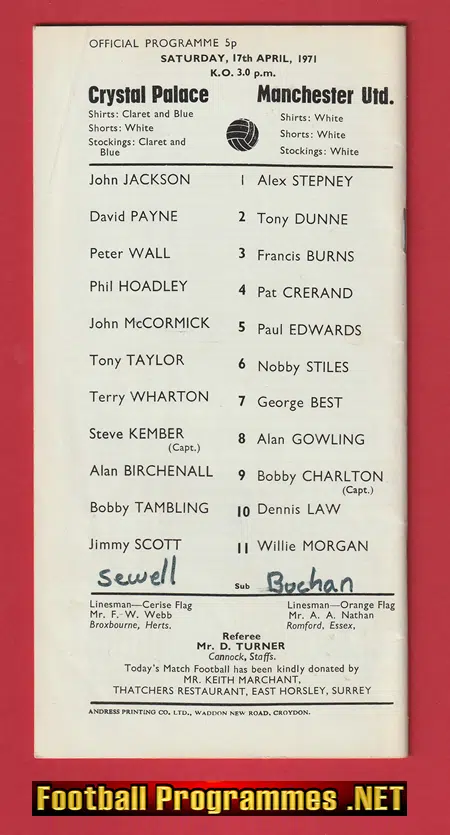 OFFICIAL PROGRAMME 5p
SATURDAY, 17th APRIL, 1971
K.O. 3.0 p.m.
Crystal Palace Manchester Utd.
Shirts: Claret and Blue Shirts: White
Shorts: White Shorts: White
Stockings: Claret and Blue Stockings: White
John JACKSON 1 Alex STEPNEY
David PAYNE 2 Tony DUNNE
Peter WALL 3 Francis BURNS
Phil HOADLEY 4 Pat CRERAND
John McCORMICK 5 Paul EDWARDS
Tony TAYLOR 6 Nobby STILES
Terry WHARTON 7 George BEST
Steve KEMBER (Capt.) 8 Alan GOWLING
Alan BIRCHENALL 9 Bobby CHARLTON (Capt.)
Bobby TAMBLING 10 Dennis LAW
Jimmy SCOTT 11 Willie MORGAN
Sewell Sub Buchan
Linesman—Cerise Flag Linesman—Orange Flag
Mr. F. W. Webb Mr. A. A. Nathan
Broxbourne, Herts. Romford, Essex.
Referee
Mr. D. TURNER
Cannock, Staffs.
Today's Match Football has been kindly donated by
MR. KEITH MARCHANT,
THATCHERS RESTAURANT, EAST HORSLEY, SURREY
ANDRESS PRINTING CO. LTD., WADDON NEW ROAD, CROYDON.
Football Programmes .NET